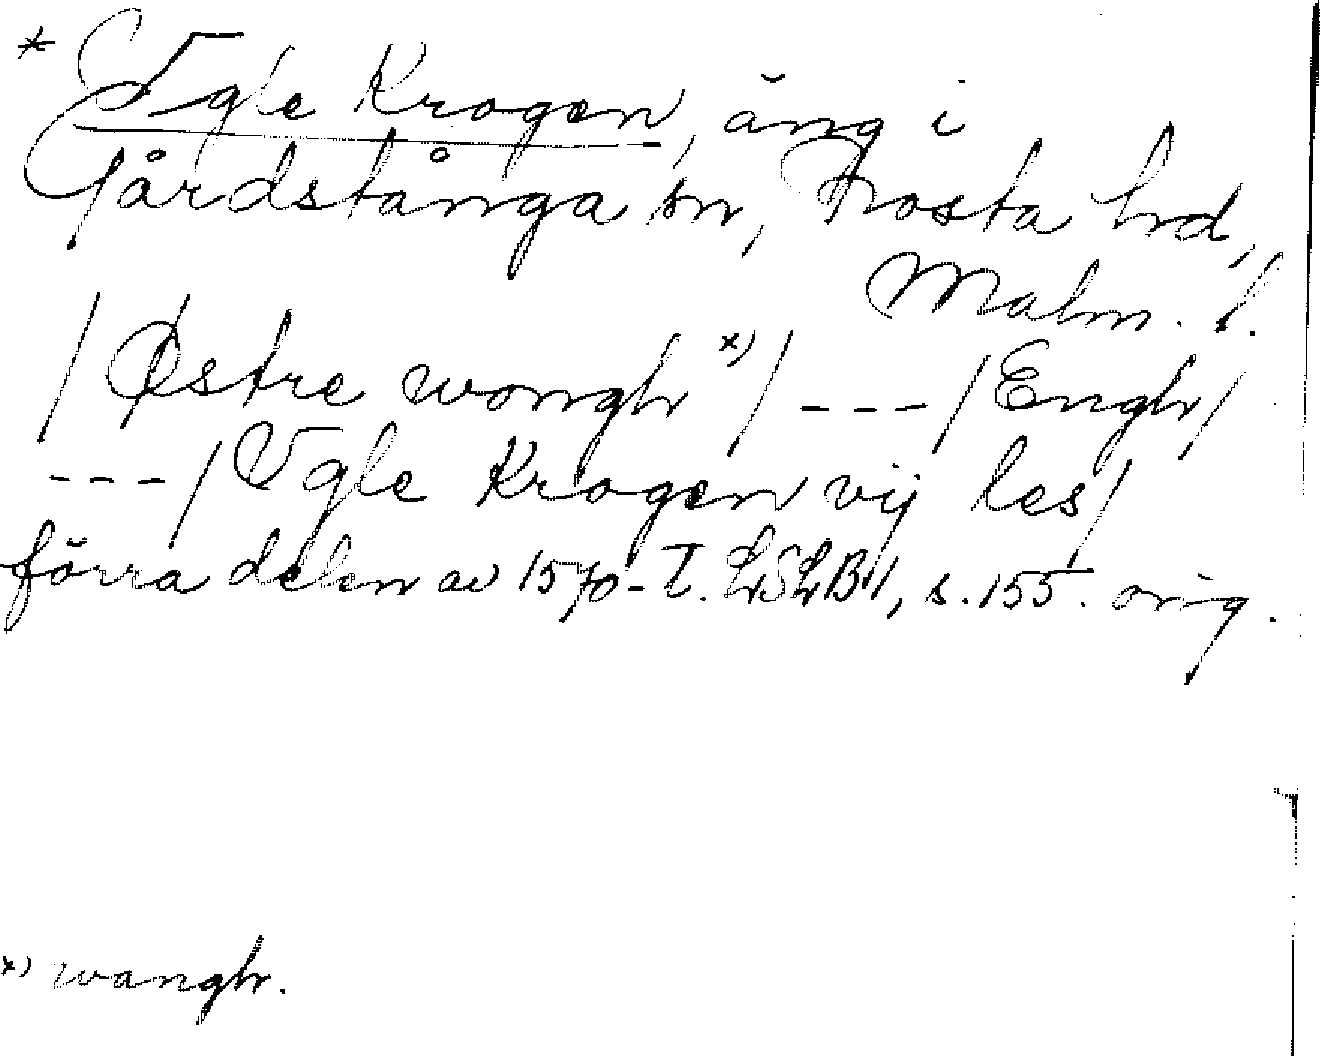 * Vgle Krogen, äng i
Gårdstånga sn, Frosta hd,
Malm. l.
/Østre wongh x)/ --- /Engh/
--- /Vgle Krogen vij les/
förra delen av 1570-t. LSLB 1, s. 155. orig.
x) wangh.